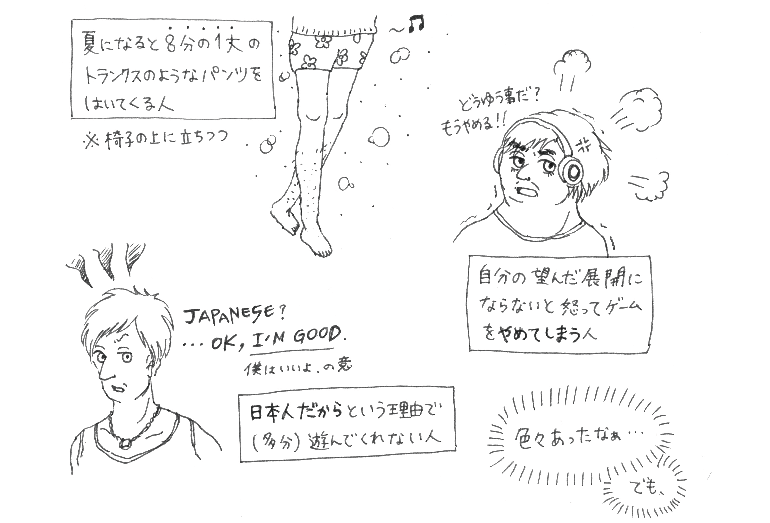 夏になると8分の1丈の
トランクスのようなパンツを
はいてくる人
※椅子の上に立ちつつ
~♫
どうゆう事だ?
もうやめる!!
自分の望んだ展開に
ならないと怒ってゲーム
をやめてしまう人
JAPANESE?
...OK, I'M GOOD.
僕はいいよ、の意
日本人だからという理由で
(多分)遊んでくれない人
色々あったなぁ…
でも、